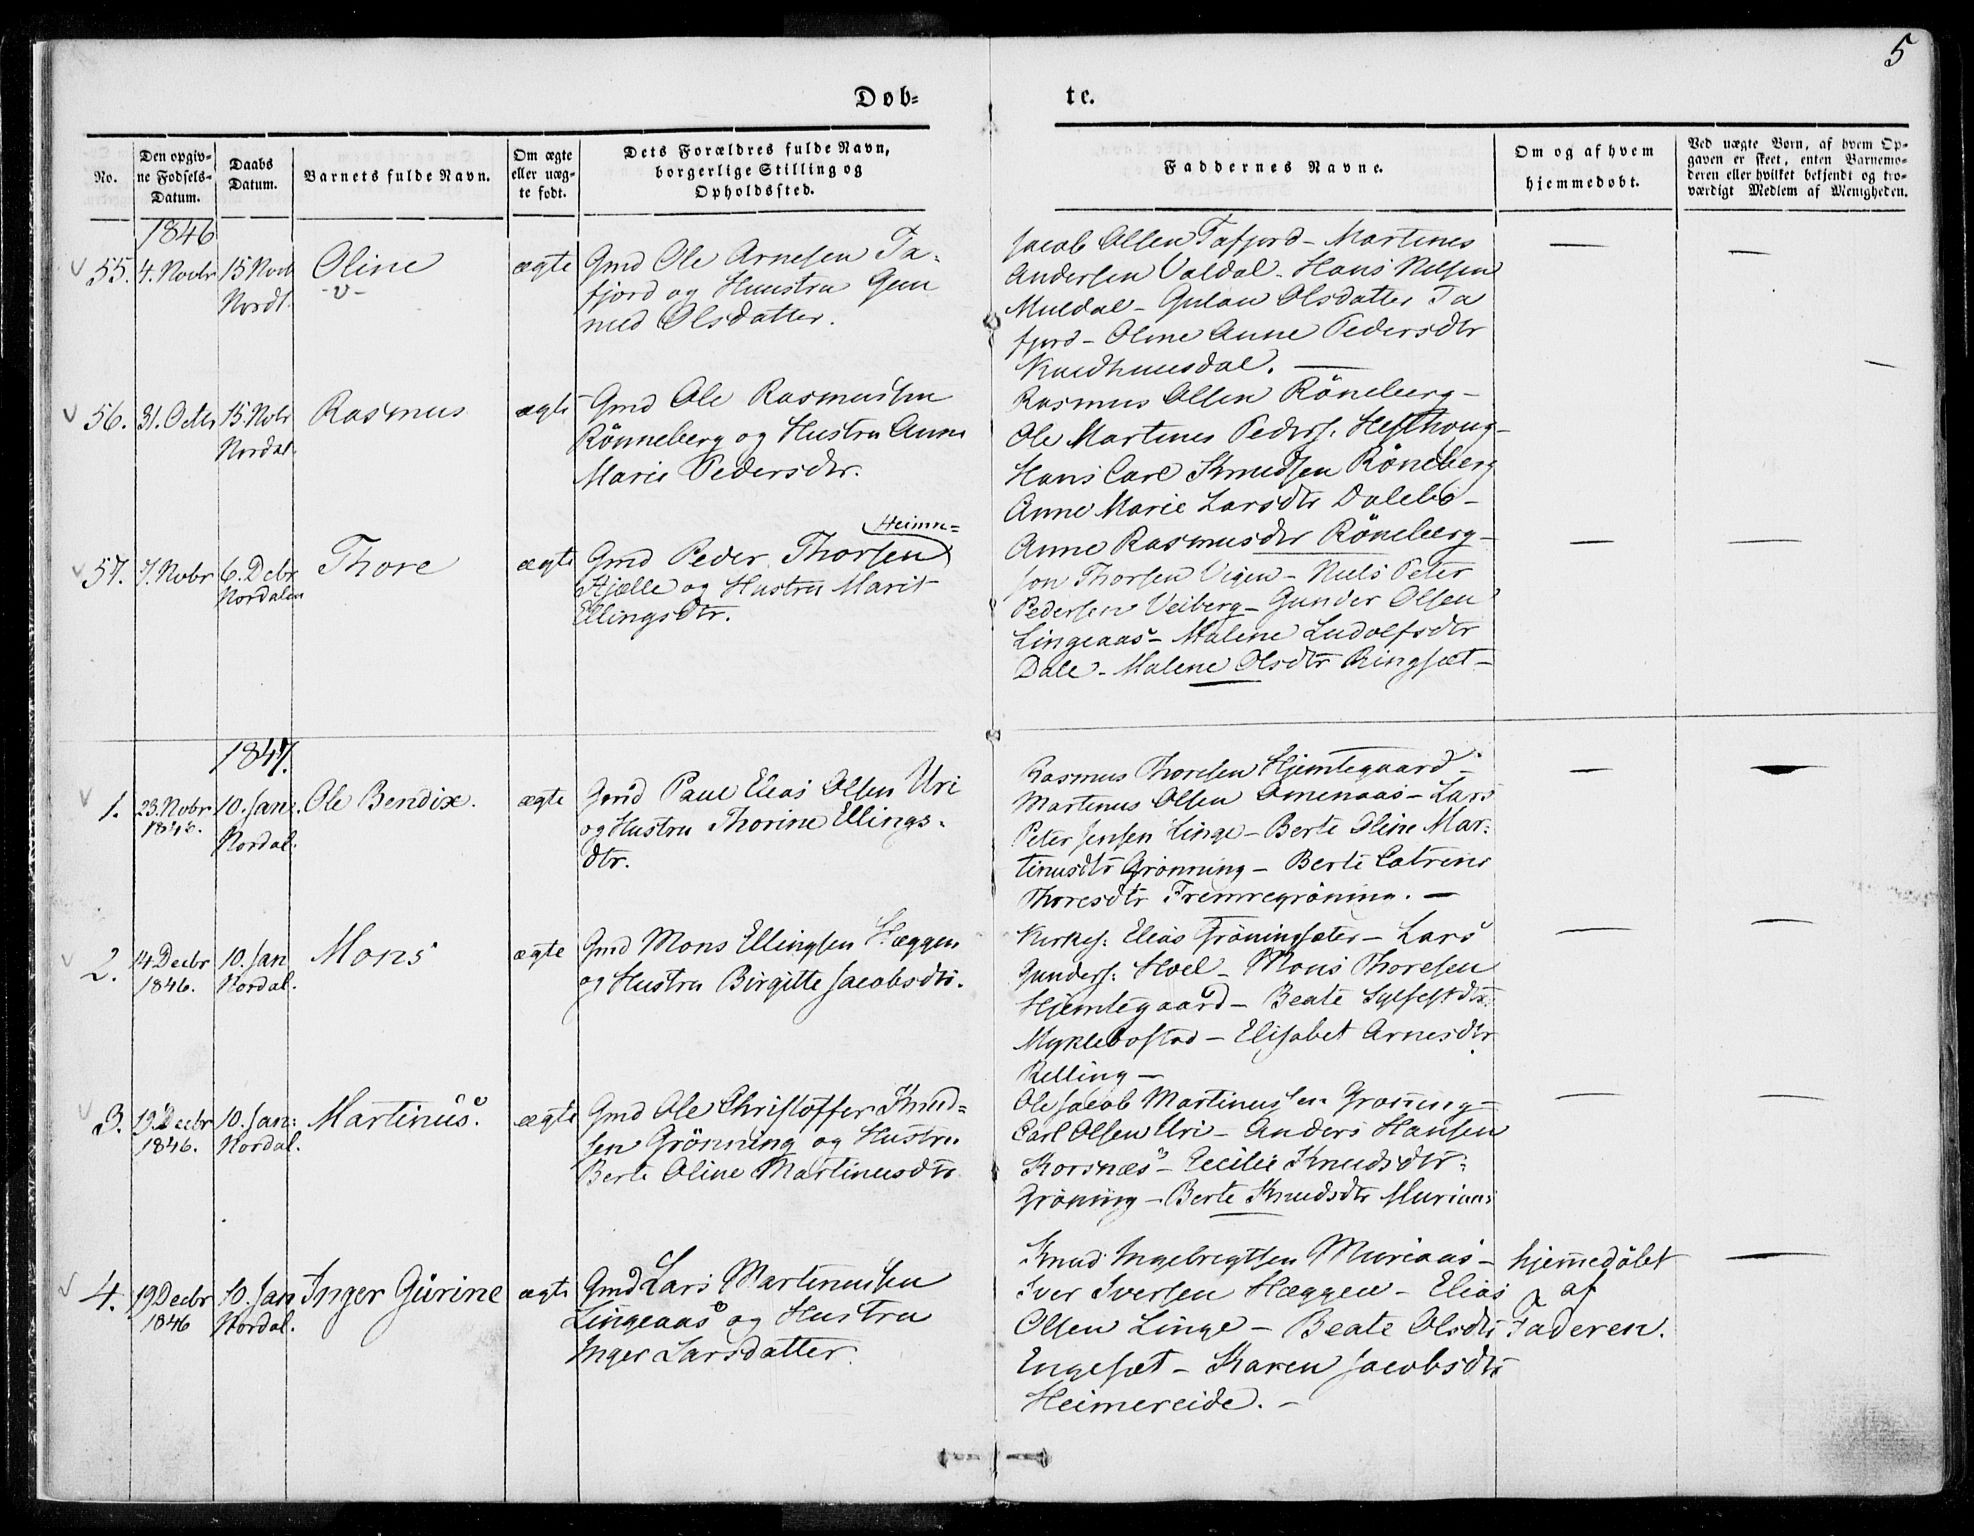 5
Døb-
te.
No.
Den opgiv-
ne Fødsels-
Datum.
Daabs
Datum.
Barnets fulde Navn.
Om ægte
eller uæg-
te født.
Dets Forældres fulde Navn,
borgerlige Stilling og
Opholdssted.
Faddernes Navne.
Om og af hvem
hjemmedøbt.
Ved uægte Børn, af hvem Op-
gaven er skeet, enten Barnemo-
deren eller hvilket bekjendt og tro-
værdigt Medlem af Menigheden.
1846
55. 4. Novbr 15 Novb
Nordl.
Oline
ægte
Gmd Ole Arnesen Ta-
fjord og Huustru Gun
med Olsdatter.
Jacob Olsen Tafjord - Martines
Andersen Valdal - Hans Nilsen
Muldal - Gulan Olsdatter Ta
fjord - Oline Anne Pedersdtr
56. 31. Octbr 15 Nobr
Nordal.
Rasmus
ægte
Gmd Ole Rasmussen
Rönneberg og Hustru Anne
Marie Pedersdtr.
Rasmus Olsen Röneberg -
Ole Martines Peders.
Hans Carl Knudsen Röneberg
Anne Marie Larsdtr Dalebø -
Anne Rasmusdtr Röneberg -
57. 7. Nobr 6. Debr
Nordalen
Thore
ægte
Gmd Peder Thorsen Heimre-
Kjælle og Hustru Marit
Ellingsdtr.
Jon Thorsen Vigen - Niels Peter
Pedersen Veiberg - Gunder Olsen
Lingeaas - Malene Ludolfsdtr
Dale - Malene Olsdtr Ringset -
1847.
1. 23. Nobr 1846. 10. Jan:
Nordal.
Ole Bendix.
ægte
Gmd Paul Elias Olsen Uri
og Hustru Thorine Ellings-
dtr.
Rasmus Thoresen Hjemtegaard -
Martinus Olsen Omenaas - Lars
Peter Jensen Linge - Berte Oline Mar-
tinusdtr Grönning - Berte Catrine
Thoresdtr Fremregröning. -
2. 14 Decbr 1846. 10. Jan
Nordal.
Mons
ægte
Gmd Mons Ellingsen Hæggen
og Hustru Birgitte Jacobsdtr.
Kirkes: Elias Gröningsæter - Lars
Gunders: Hoel - Mons Thoresen
Hjemtegaard - Beate Sylfestdtr.
Myklebostad - Elisabet Arnesdtr
Relling -
3. 19. Decbr 1846. 10. Jan:
Nordal.
Martinus.
ægte
Gmd Ole Christoffer Knud-
sen Grönning og Hustru
Berte Oline Martinusdtr
Ole Jacob Martinussen Gröning -
Carl Olsen Uri - Anders Hansen
Korsnæs - Cecilie Knudsdtr:
Gröning - Berte Knudsdtr Muriaas
4. 19 Decbr 1846 10. Jan
Nordal.
Inger Gurine
ægte
Gmd Lars Martinussen
Lingeaas og Hustru
Inger Larsdatter.
Knud Ingebrigtsen Muriaas -
Iver Iversen Hæggen - Elias
Olsen Linge - Beate Olsdtr
Engeset - Karen Jacobsdtr
Heimereide. -
hjemmedöbt
af
Faderen.